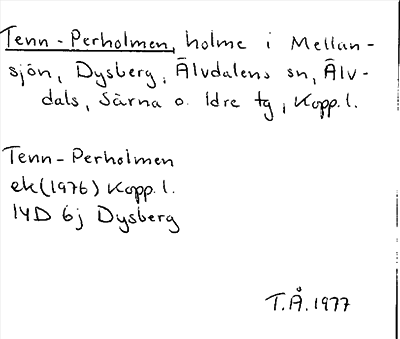 Tenn-Perholmen, holme i Mellan-
sjön, Dysberg, Älvdalens sn, Älv-
dals, Särna o. Idre tg, Kopp. l.
Tenn-Perholmen
ek(1976) Kopp. l.
14D 6j Dysberg
T.Å. 1977